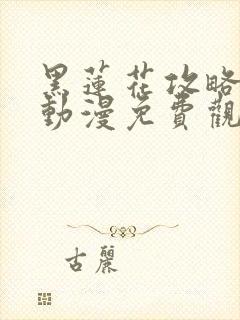 黑蓮花攻略
動漫免費觀
古麗